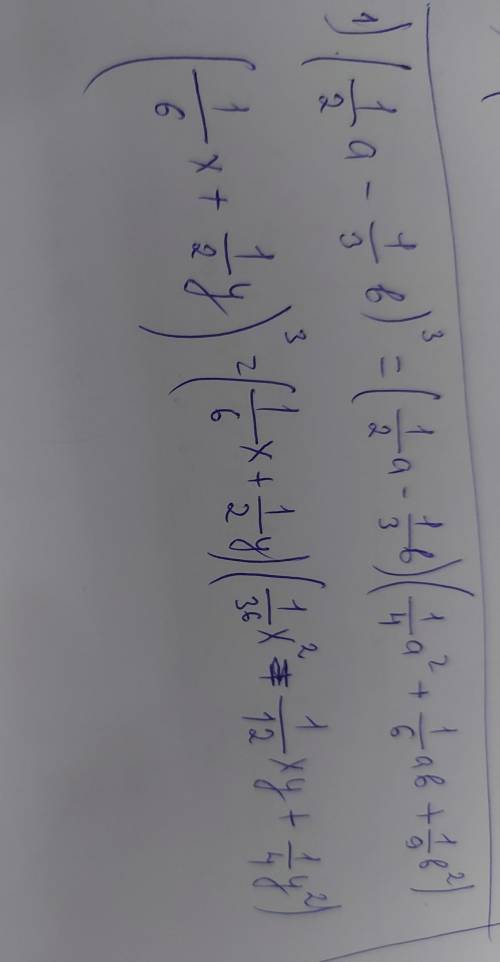 1) (1/2 a - 1/3 b)³ = (1/2 a - 1/3 b)(1/4 a² + 1/6 ab + 1/9 b²)
(1/6 x + 1/2 y)³ = (1/6 x + 1/2 y)(1/36 x² - 1/12 xy + 1/4 y²)